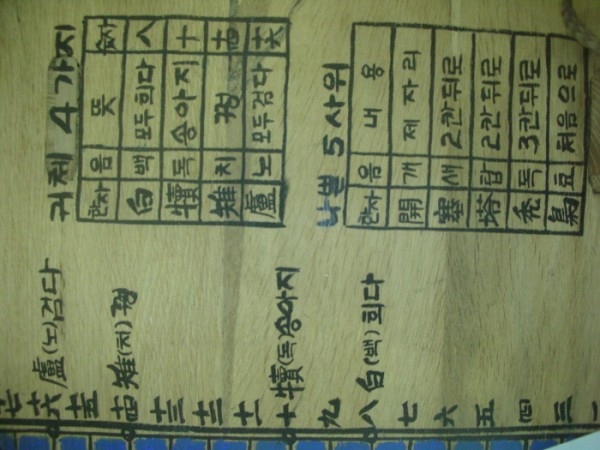 귀체 4가지
한자 음 뜻 숫자
白 백 모두희다 八
犢 독 송아지 十
雉 치 꿩 十四
盧 노 모두검다 十六
5사위
한자 음 내용
開 개 제자리
塞 새 2칸뒤로
塔 탑 2칸뒤로
禿 독 3칸뒤로
梟 효 처음으로
十七
十六 盧(노)검다
十五
十四 雉(치)꿩
十三
十二
十一
十 犢(독)송아지
九
八 白(백)희다
七
六
五
四
三